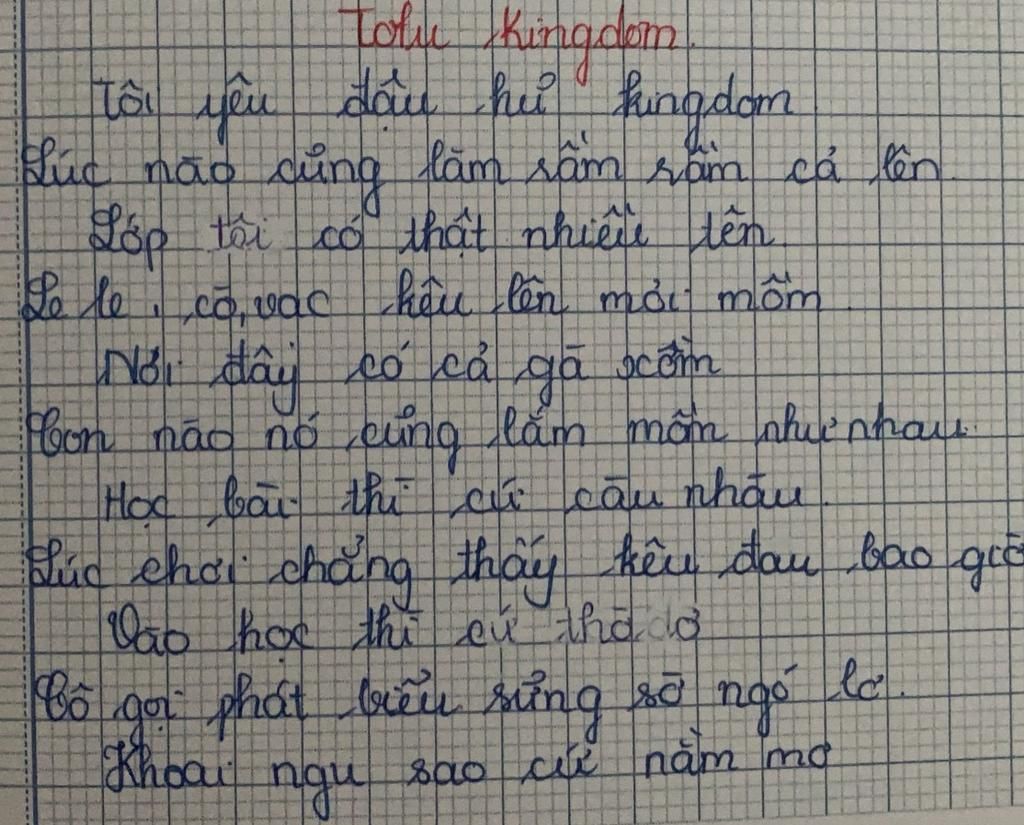 Tofu Kingdom.
Tôi yêu đậu hủ kingdom
Lúc nào cũng làm rầm rầm cả lên
Lớp tôi có thật nhiều tên
Le le, cò, vạc kêu lên mỏi mồm
Nơi đây có cả gà xồm
Con nào nó cũng lắm mồm như nhau.
Học bài thì cứ càu nhàu.
Lúc chơi chẳng thấy kêu đau bao giờ
Vào học thì cứ thờ ơ
Cô gọi phát biểu sững sờ ngó lơ.
Khoai ngu sao cứ nằm mơ